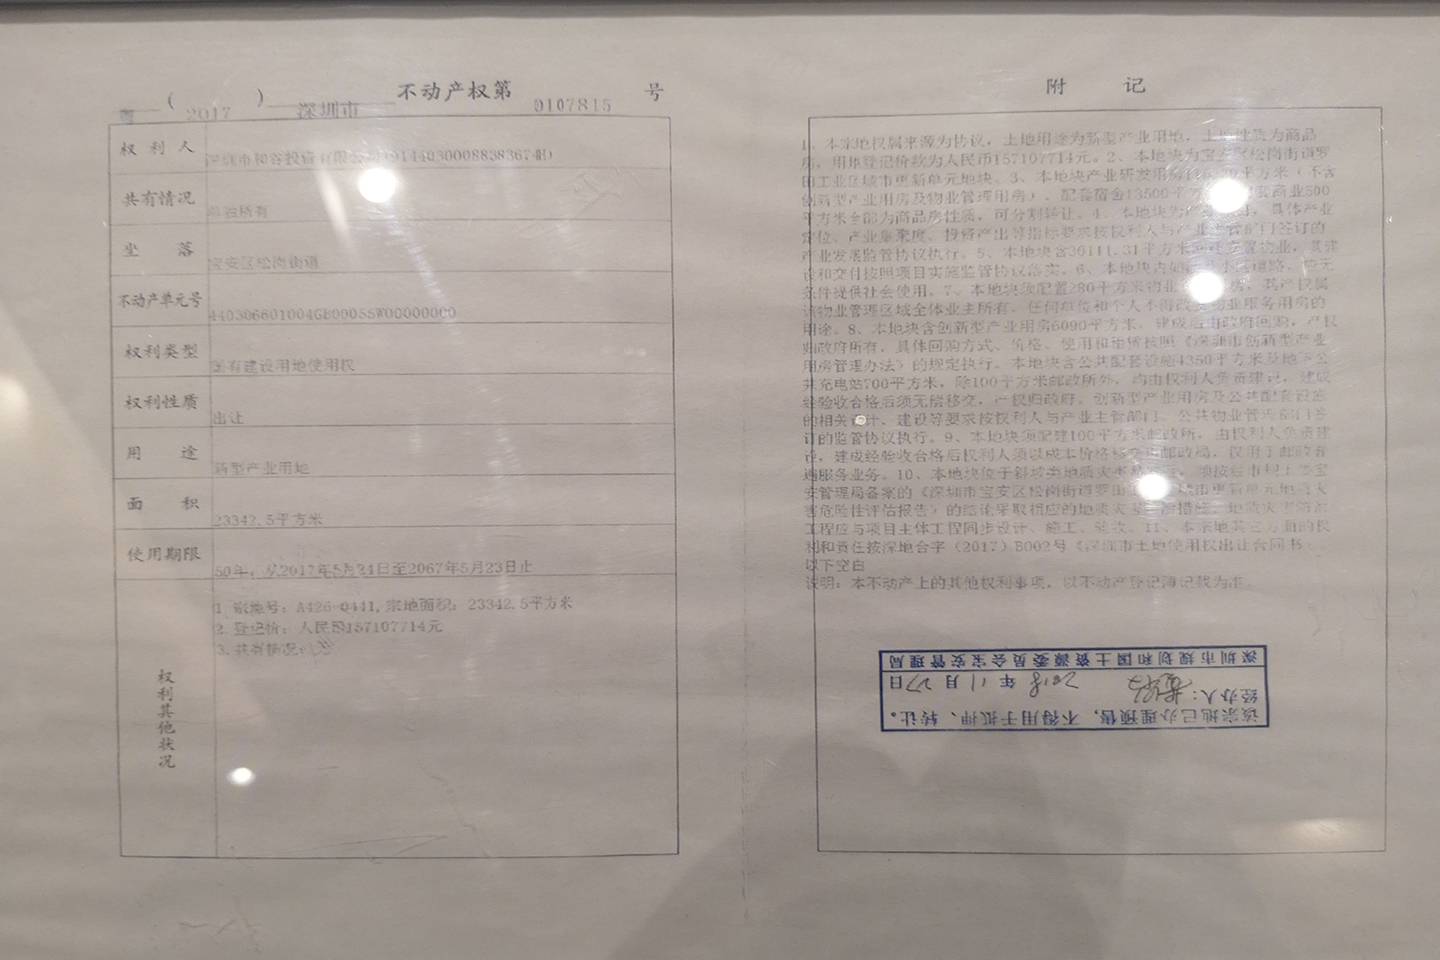 粤 ( 2017 ) 深圳市 不动产权第 0107815 号
权利人 深圳市和谷投资有限公司(914403000883836 7
共有情况 单独所有
坐落 宝安区松岗街道
不动产单元号 440306601004GB00055W00000000
权利类型 国有建设用地使用权
权利性质 出让
用途 新型产业用地
面积 23342.5平方米
使用期限 50年，从2017年5月24日至2067年5月23日止
权利其他状况
1. 宗地号：A426-0441,宗地面积：23342.5平方米
2. 登记价：人民币157107714元
3. 共有情况：
附 记
1、本宗地权属来源为协议，土地用途为新型产业用地，土地性质为商品
房，用地登记价款为人民币157107714元。2、本地块为宝安区松岗街道罗
田工业区城市更新单元地块。3、本地块产业研发用房 平方米（不含
创新型产业用房及物业管理用房）、配套宿舍13500平方 配套商业500
平方米全部为商品房性质，可分割转让。4、本地块为 ，具体产业
定位、产业集聚度、投资产出等指标要求按权利人与产业主管部门签订的
产业发展监管协议执行。5、本地块含30111.31平方米 物业，其建
设和交付按照项目实施监管协议落实。6、本地块内 道路，应无
条件提供社会使用。7、本地块须配置280平方米物业 房，其产权属
该物业管理区域全体业主所有，任何单位和个人不得改变物业服务用房的
用途。8、本地块含创新型产业用房6090平方米，建成后由政府回购，产权
归政府所有，具体回购方式、价格、使用和租赁按照《深圳市创新型产业
用房管理办法》的规定执行。本地块含公共配套设施4350平方米及地下公
共充电站700平方米，除100平方米邮政所外，均由权利人负责建设，建成
经验收合格后须无偿移交，产权归政府。创新型产业用房及公共配套设施
的相关设计、建设等要求按权利人与产业主管部门、公共物业管理部门签
订的监管协议执行。9、本地块须配建100平方米邮政所，由权利人负责建
设，建成经验收合格后权利人须以成本价格移交 邮政局，仅用于邮政普
遍服务业务。10、本地块位于斜坡类地质灾害 ，须按经市规土委宝
安管理局备案的《深圳市宝安区松岗街道罗田 城市更新单元地质灾
害危险性评估报告》的结论采取相应的地质灾 措施，地质灾害防治
工程应与项目主体工程同步设计、施工、验收。11、本宗地其它方面的权
利和责任按深地合字（2017）B002号《深圳市土地使用权出让合同书》。
以下空白
说明：本不动产上的其他权利事项，以不动产登记簿记载为准。
该宗地已办理预售，不得用于抵押、转让。
经办人：
2018 年 11 月 27 日
深圳市规划和国土资源委员会宝安管理局